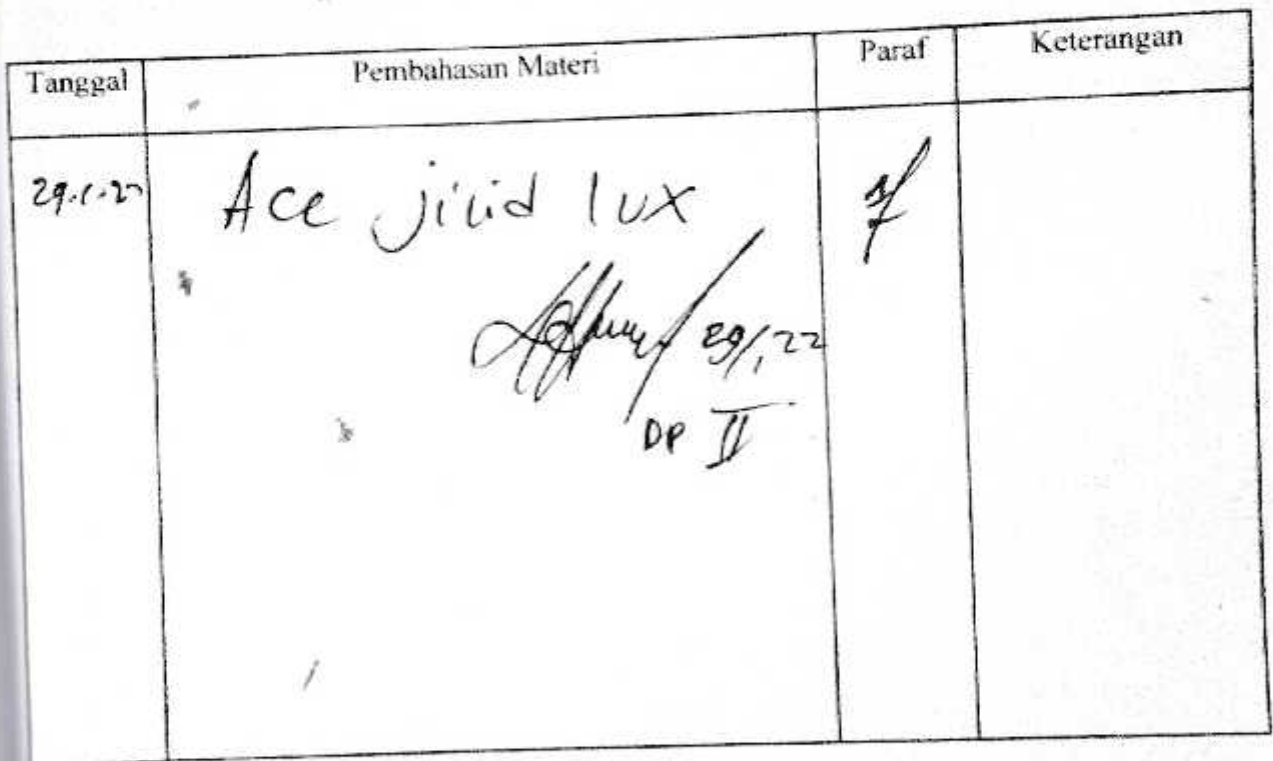 Tanggal Pembahasan Materi Paraf Keterangan
29.1.22 Ace jilid lux
29/1 22
DP II